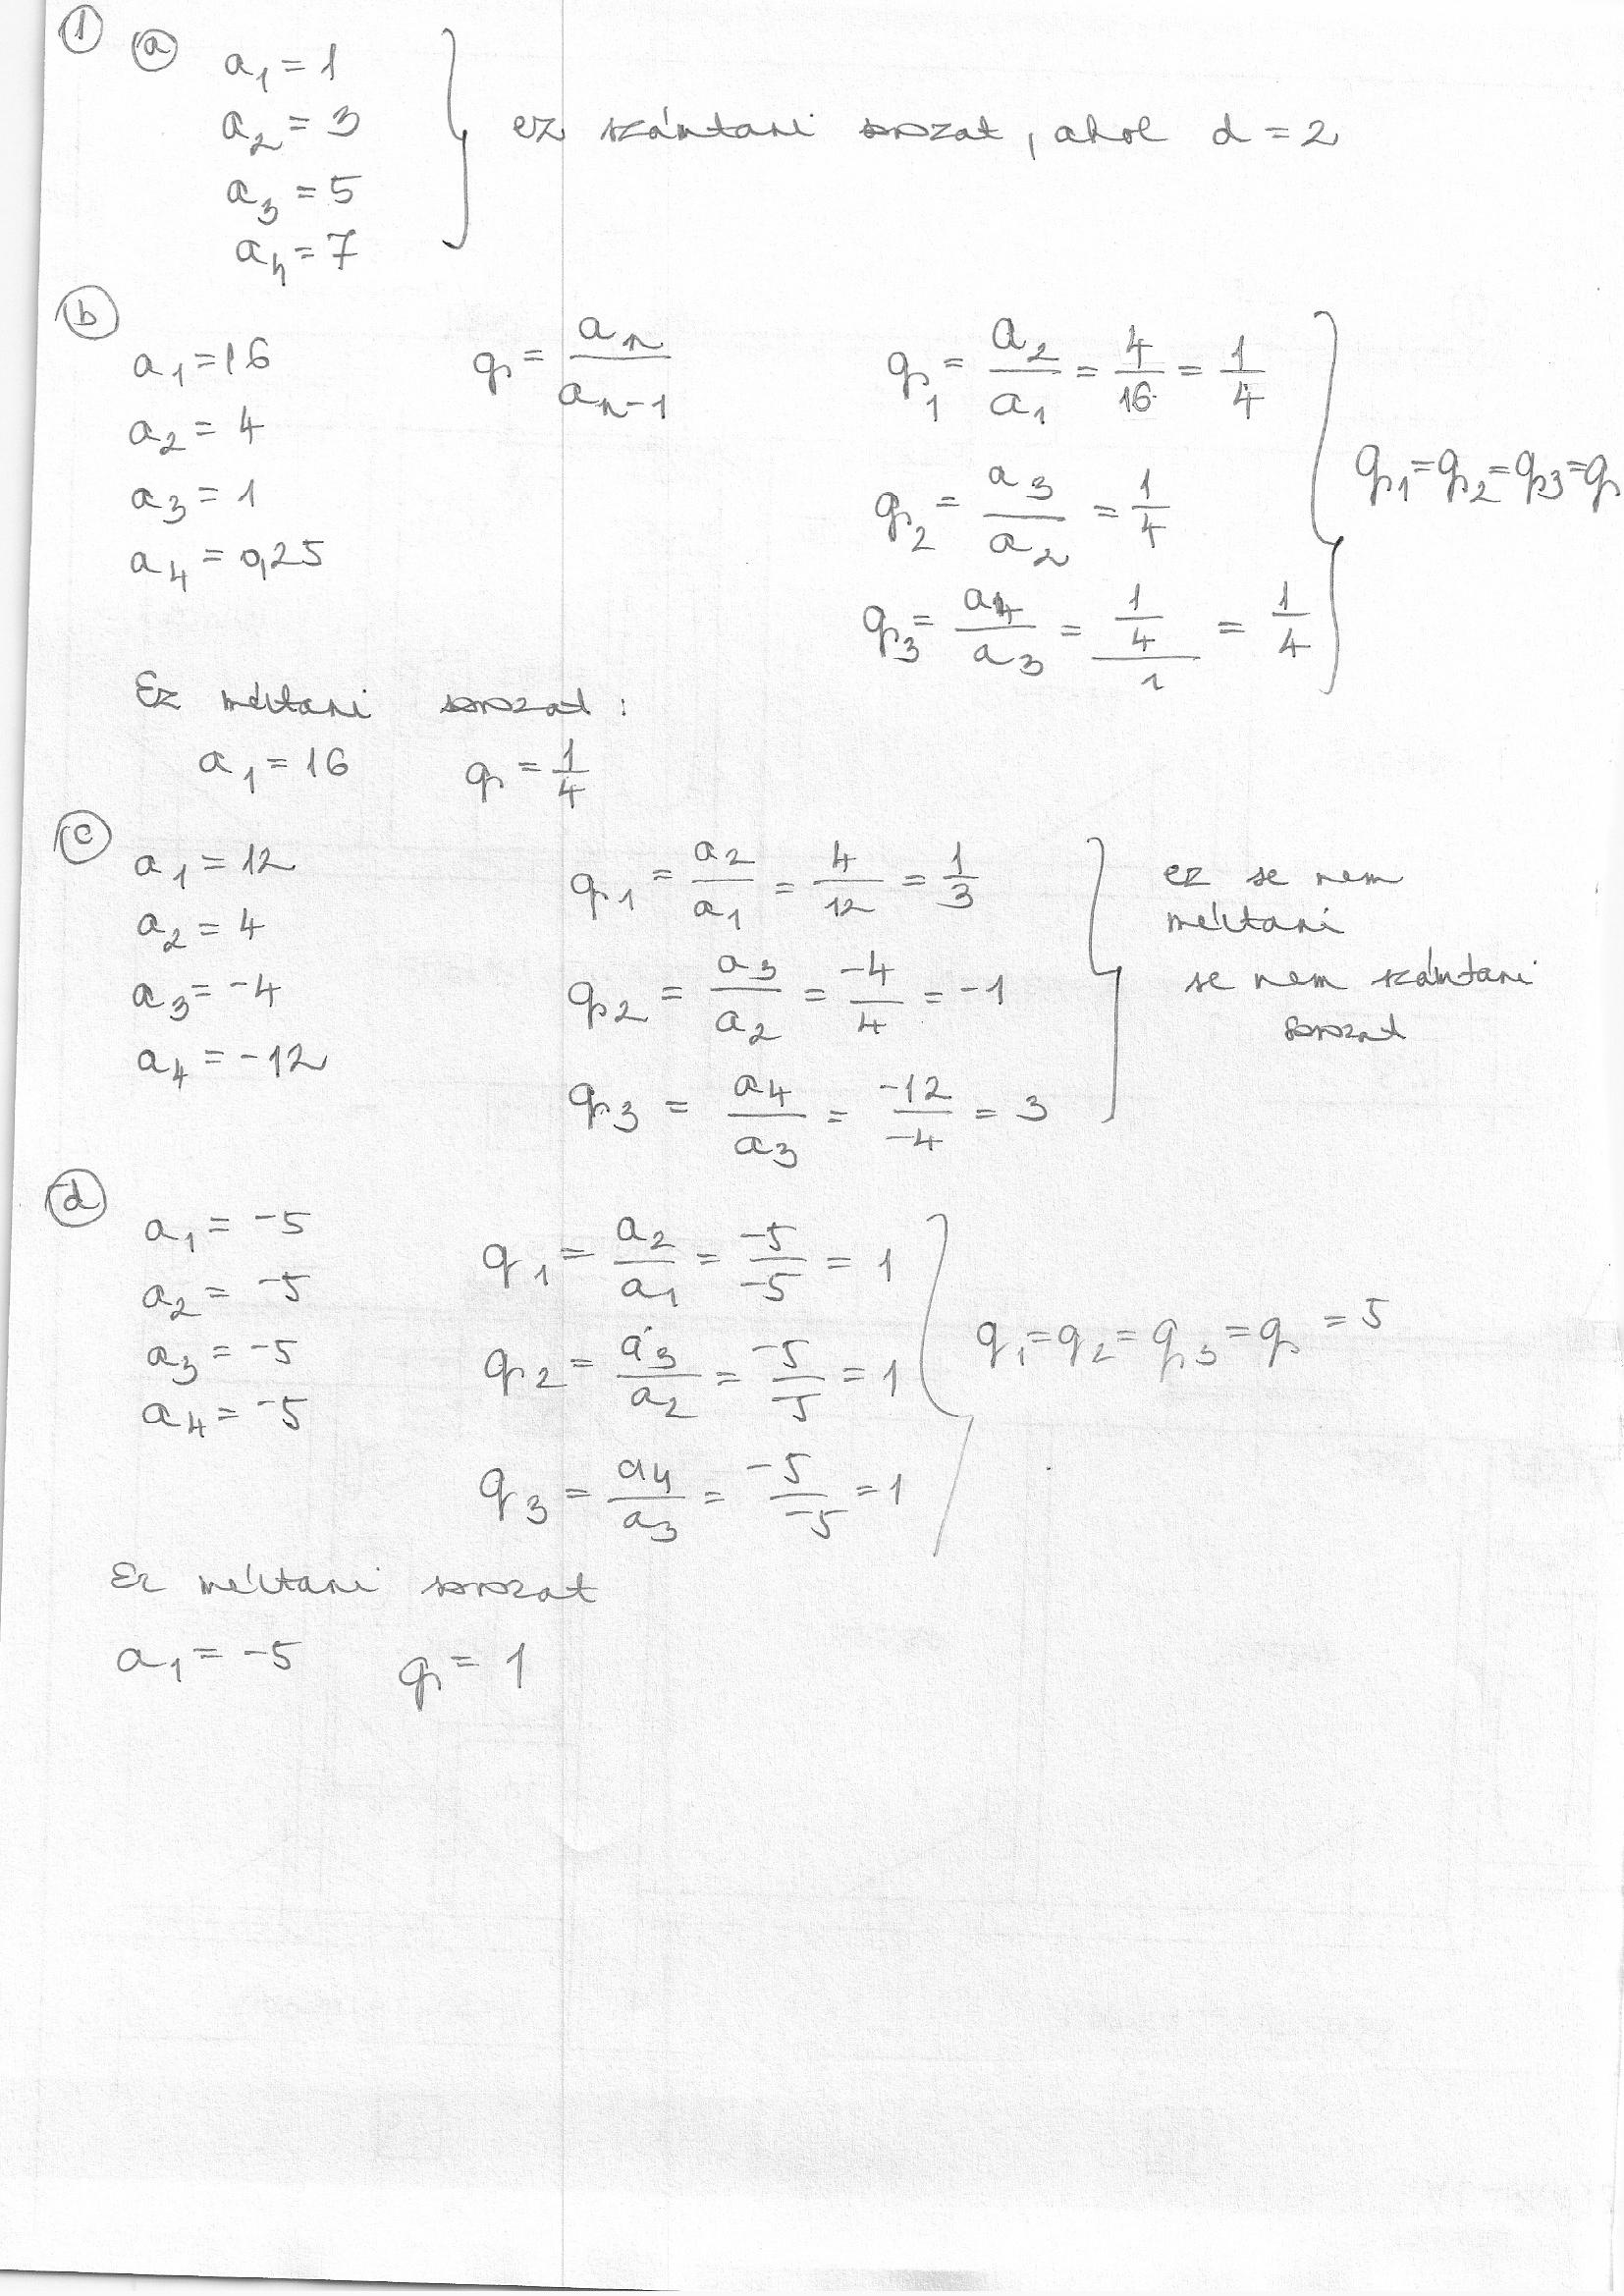 ① ⓐ a₁ = 1
a₂ = 3
ez számtani sorozat, ahol d = 2
a₃ = 5
a₄ = 7
ⓑ
a₁ = 16
a₂ = 4
a₃ = 1
a₄ = 0,25
q = aₙ / aₙ₋₁
q₁ = a₂/a₁ = 4/16 = 1/4
q₂ = a₃/a₂ = 1/4
q₃ = a₄/a₃ = (1/4)/1 = 1/4
q₁ = q₂ = q₃ = q
Ez mértani sorozat :
a₁ = 16 q = 1/4
ⓒ
a₁ = 12
a₂ = 4
a₃ = -4
a₄ = -12
q₁ = a₂/a₁ = 4/12 = 1/3
q₂ = a₃/a₂ = -4/4 = -1
q₃ = a₄/a₃ = -12/-4 = 3
ez se nem
mértani
se nem számtani
sorozat
ⓓ
a₁ = -5
a₂ = -5
a₃ = -5
a₄ = -5
q₁ = a₂/a₁ = -5/-5 = 1
q₂ = a₃/a₂ = -5/5 = 1
q₃ = a₄/a₃ = -5/-5 = 1
q₁ = q₂ = q₃ = q = 5
Ez mértani sorozat
a₁ = -5 q = 1